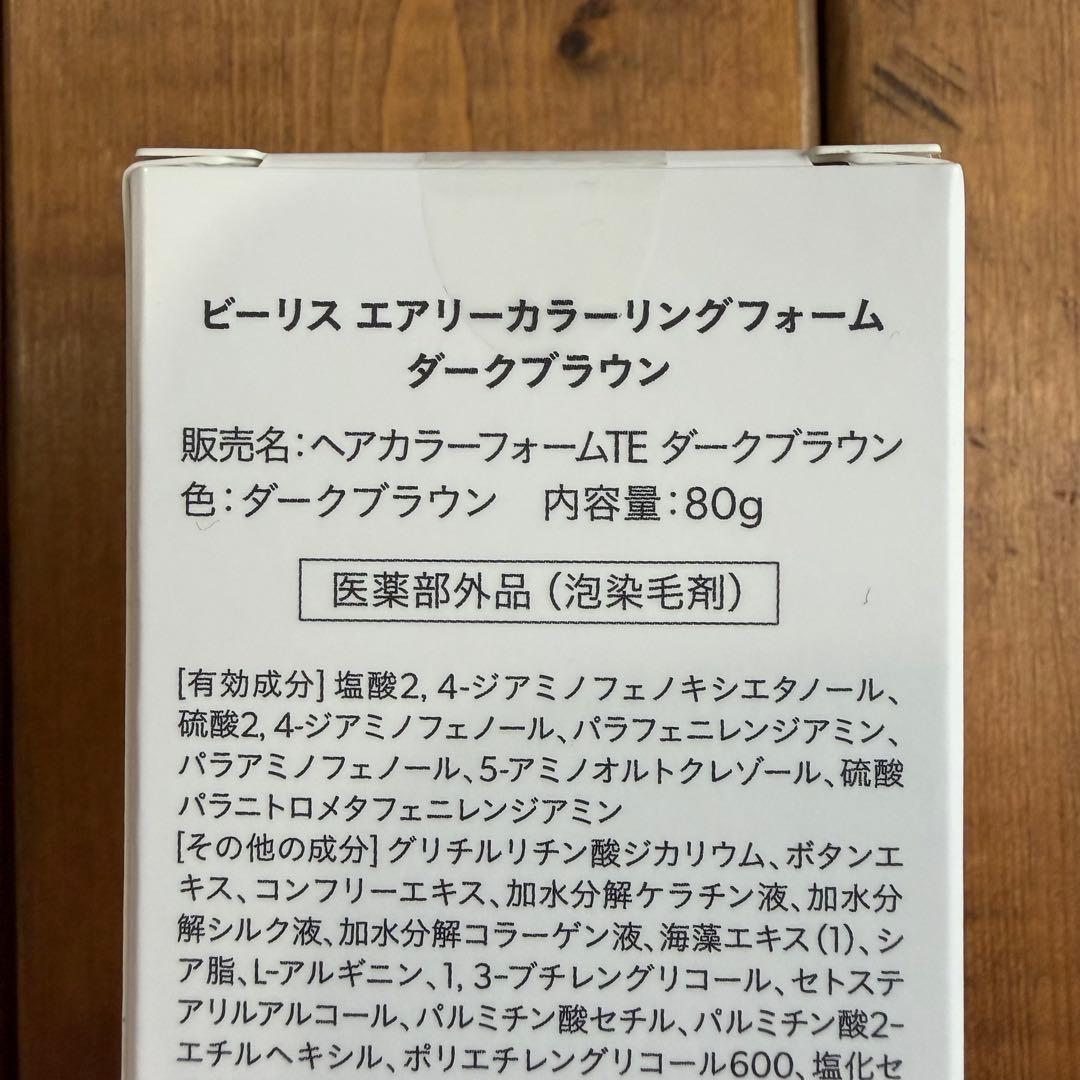 ビーリス エアリーカラーリングフォーム
ダークブラウン
販売名:ヘアカラーフォームTE ダークブラウン
色:ダークブラウン 内容量:80g
医薬部外品(泡染毛剤)
[有効成分]塩酸2, 4-ジアミノフェノキシエタノール、
硫酸2, 4-ジアミノフェノール、パラフェニレンジアミン、
パラアミノフェノール、5-アミノオルトクレゾール、硫酸
パラニトロメタフェニレンジアミン
[その他の成分]グリチルリチン酸ジカリウム、ボタンエ
キス、コンフリーエキス、加水分解ケラチン液、加水分
解シルク液、加水分解コラーゲン液、海藻エキス(1)、シ
ア脂、L-アルギニン、1, 3-ブチレングリコール、セトステ
アリルアルコール、パルミチン酸セチル、パルミチン酸2-
エチルヘキシル、ポリエチレングリコール600、塩化セ